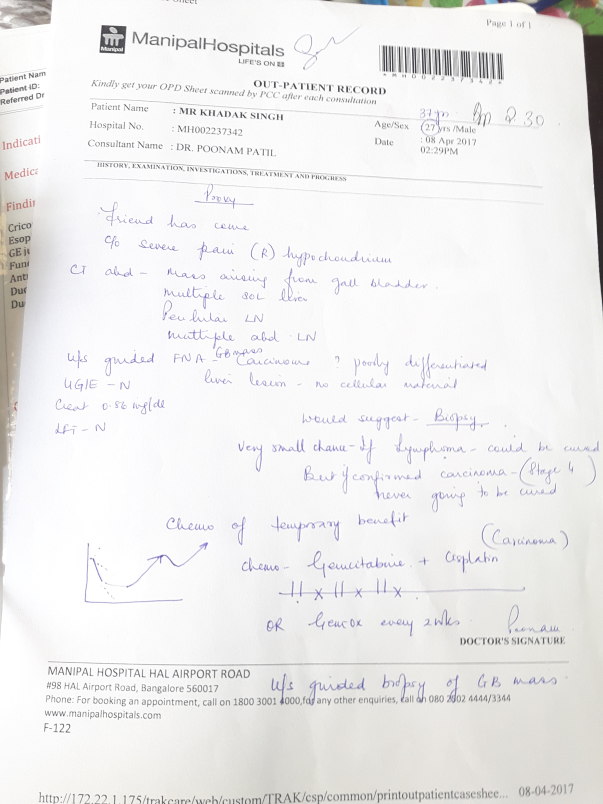 Page 1 of 1
Manipal
ManipalHospitals
LIFE'S ON
OUT-PATIENT RECORD
Kindly get your OPD Sheet scanned by PCC after each consultation
Patient Name : MR KHADAK SINGH
37yrs
Age/Sex : 27 yrs /Male
Hospital No. : MH002237342
Date : 08 Apr 2017
02:29PM
Consultant Name : DR. POONAM PATIL
HISTORY, EXAMINATION, INVESTIGATIONS, TREATMENT AND PROGRESS
Proxy
Friend has come
C/o severe pain (R) hypochondrium
CT abd - mass arising from gall bladder.
multiple SOL liver
Perihilar LN
multiple abd LN
U/s guided FNA - GB mass Carcinoma ? poorly differentiated
liver lesion - no cellular material
UGIE - N
Creat 0.86 mg/dl
LFT - N
Would suggest - Biopsy
Very small chance - If lymphoma - could be cured
But if confirmed carcinoma - (Stage 4)
never going to be cured
Chemo of temporary benefit
(Carcinoma)
Chemo - Gemcitabine + Cisplatin
OR Gemox every 2wks
Poonam
DOCTOR'S SIGNATURE
MANIPAL HOSPITAL HAL AIRPORT ROAD
U/s guided biopsy of GB mass
#98 HAL Airport Road, Bangalore 560017
Phone: For booking an appointment, call on 1800 3001 4000, for any other enquiries, call on 080 2502 4444/3344
www.manipalhospitals.com
F-122
http://172.22.1.175/trakcare/web/custom/TRAK/csp/common/printoutpatientcaseshee... 08-04-2017
Patient Nam
Patient ID:
Referred Dr
Indicati
Medica
Findin
Crico
Esop
GE j
Fun
Ant
Du
Du